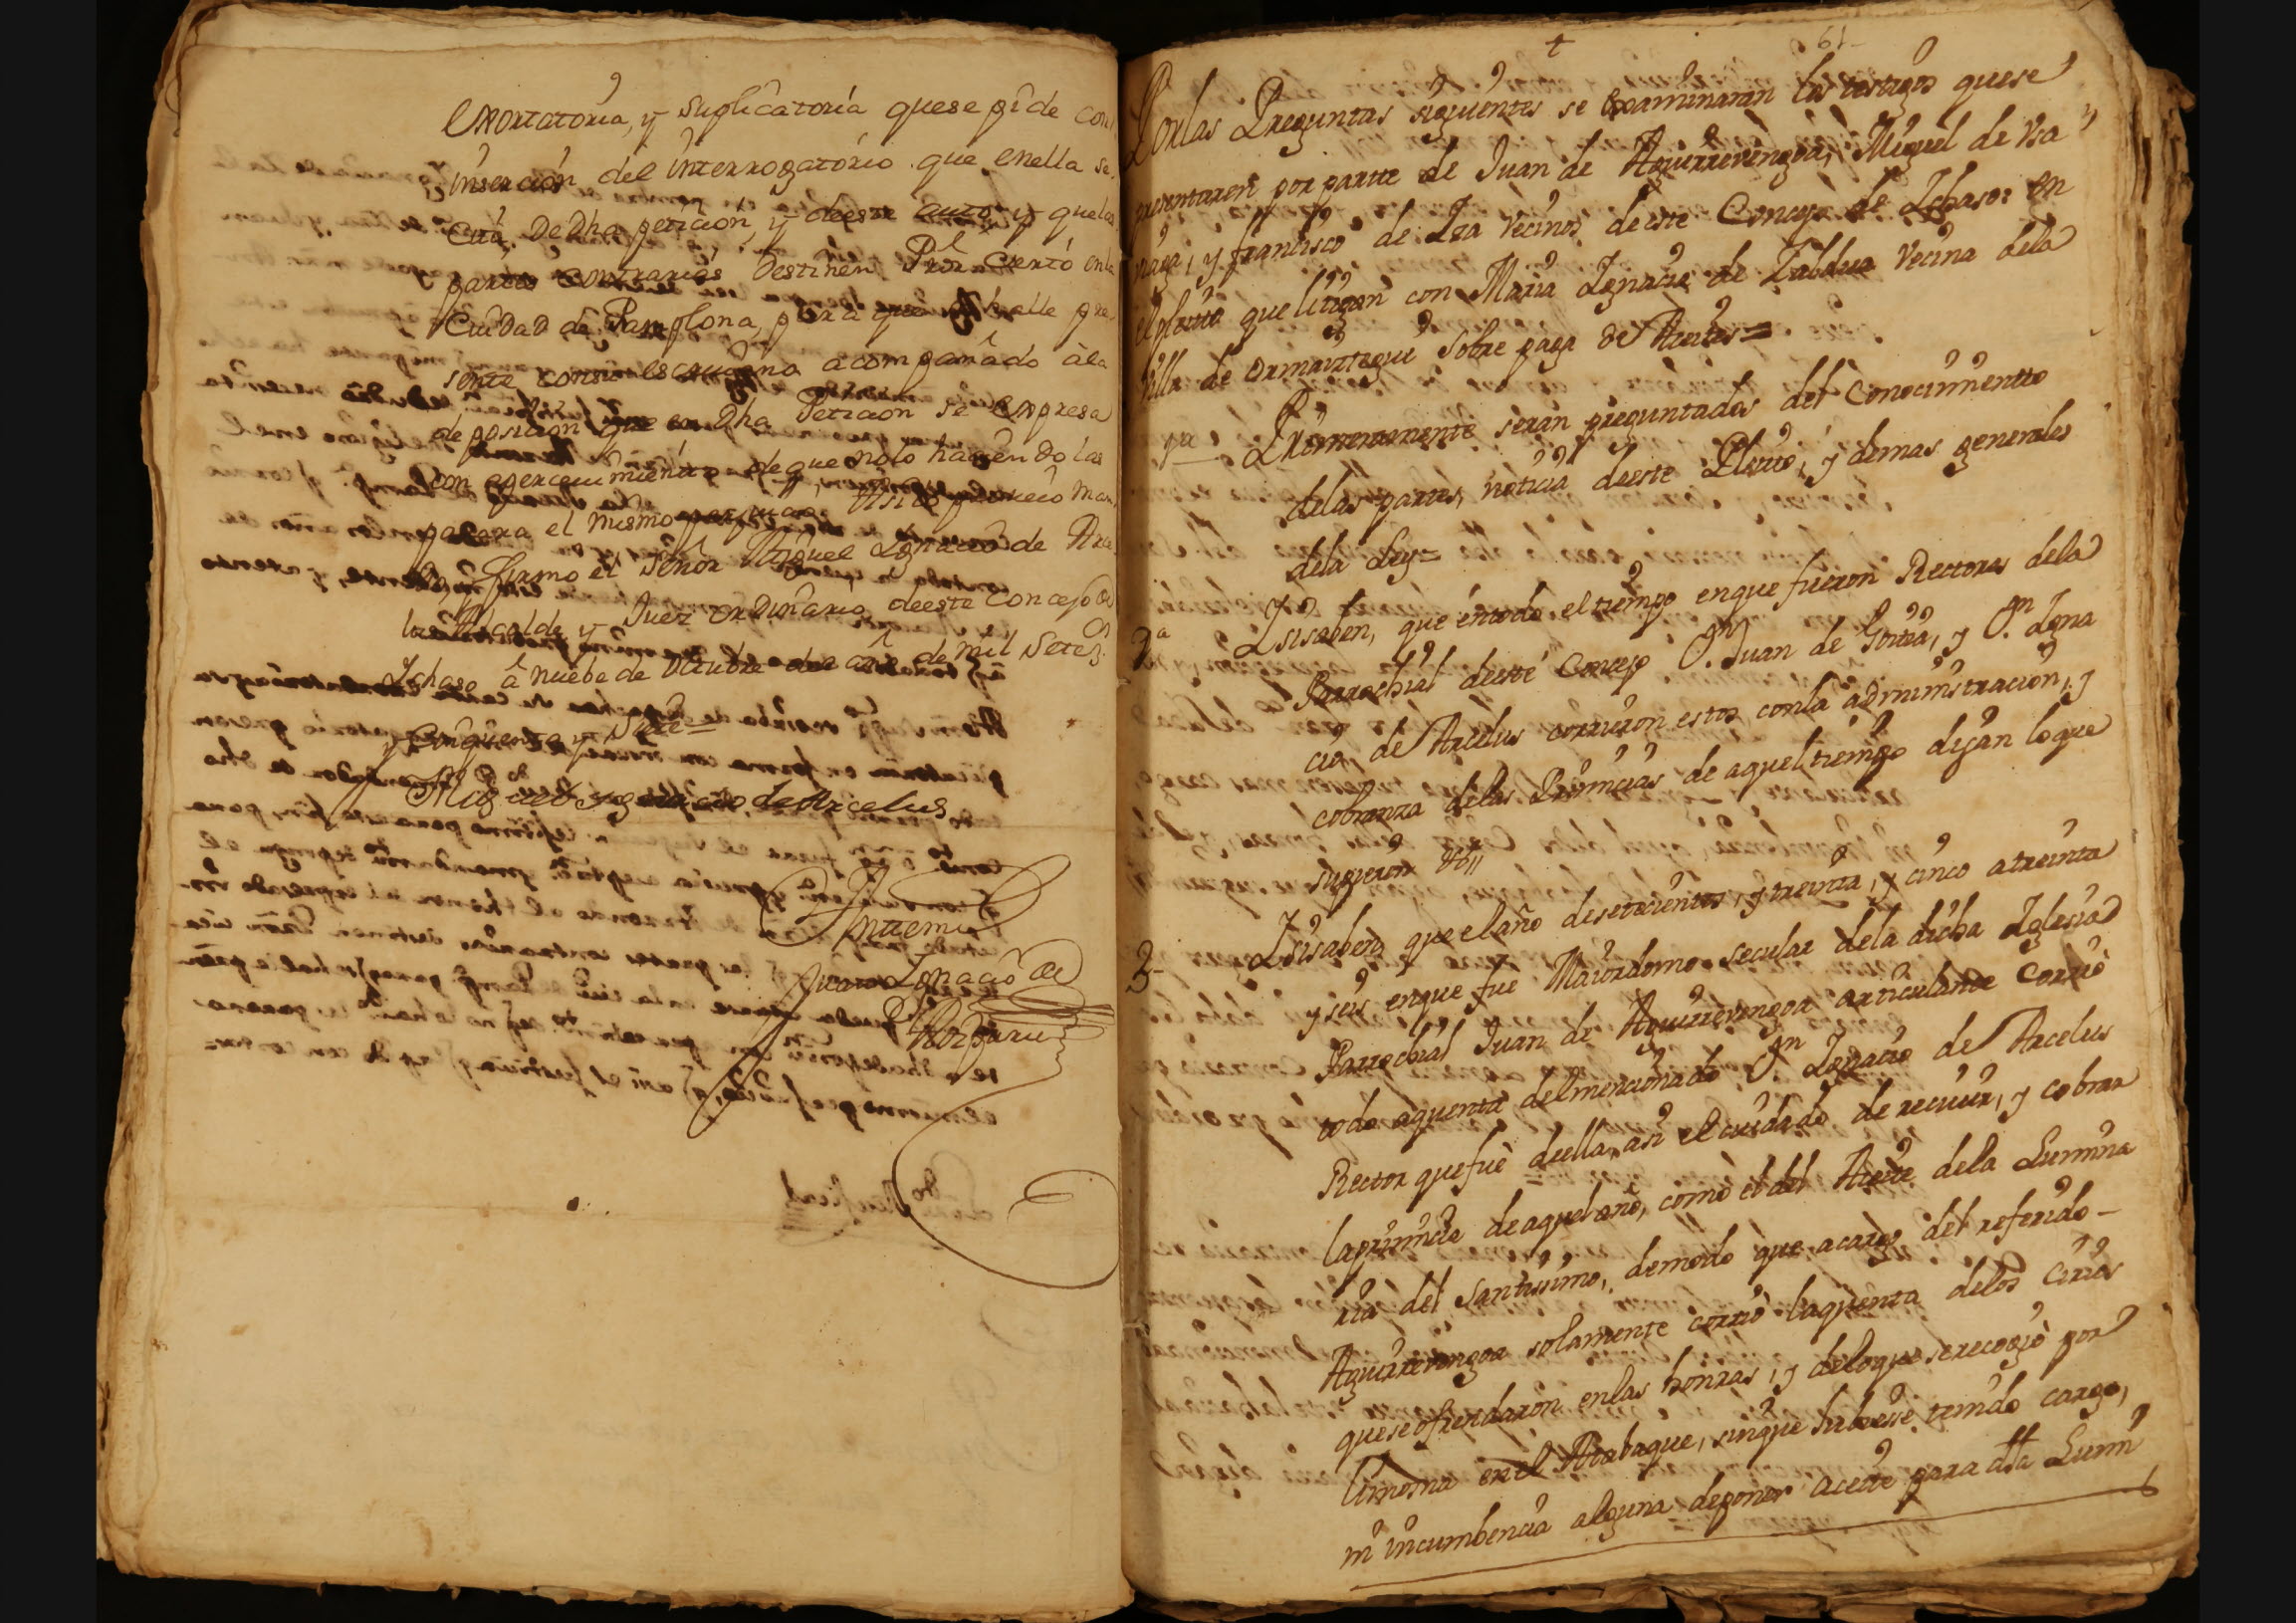 exortatoria, y suplicatoria quese pide con
insercion del interrogatorio que enella se
cita, de dha peticion, y deeste auto, y quelas
partes contrarias destinen Pror cierto enla
Ciudad de Pamplona, para que se halle pre
sente consu escrivano acompañado àla
deposicion que en dha Peticion se expresa
con apercevimiento de que nolo haciendo las
parara el mismo perjuicio, Asi lo proveio man
do, y firmo el señor Miguel Ignacio de Arce
lus Alcalde y Juez ordinario deeste Concejo de
Ichaso â nuebe de octubre de el año de mil setezs
y cinquenta y siete=
Miguel Ygnacio de Arcelus
Antemi
Juan Ignacio de
61
Por las Preguntas siguientes se examinaran los testigos quese
presentaren por partte de Juan de Aguirrevengoa, Miguel de Vsa
rraga, y francisco de Iza vecinos deeste Concejo de Ichaso: en
el pleitto que litigan con Maria Ignacia de Zabalua vecina dela
villa de Ormaiztegui sobre paga de Aceites=
1a Primeramente seran preguntados del Conocimientto
delas partes, noticia deeste Pleito, y demas generales
dela Ley=
2a Isisaben, que entodo el tiempo enque fueron Rectores dela
Parrochial deeste Concejo Dn Juan de Gorria, y Dn Igna
cio de Arcelus corrieron estos conla administracion, y
cobranza delas Primicias de aquel tiempo digan loque
supieren &a
3- Isisaben que el año desetecientos, y treinta, y cinco atreinta
y seis enque fue Maiordomo secular dela dicha Iglesia
Parrochial Juan de Aguirrevengoa articulante Corriò
todo aquenta delmencionado Dn Ignacio de Arcelus
Rector quefuè deella, asi el cuidado de recivir, y cobrar
laprimicia deaquel año, como el del Aceite dela Lumina
ria del Santissimo, demodo que acargo del referido
Aguirrevengoa solamente corriò laquenta delos Cirios
quese ofrendaron enlas honras, y deloque serecogiò por
limosna en el Atabaque, sinque hubiesse tenido cargo,
ni incumbencia alguna deponer aceite para dha Lumi